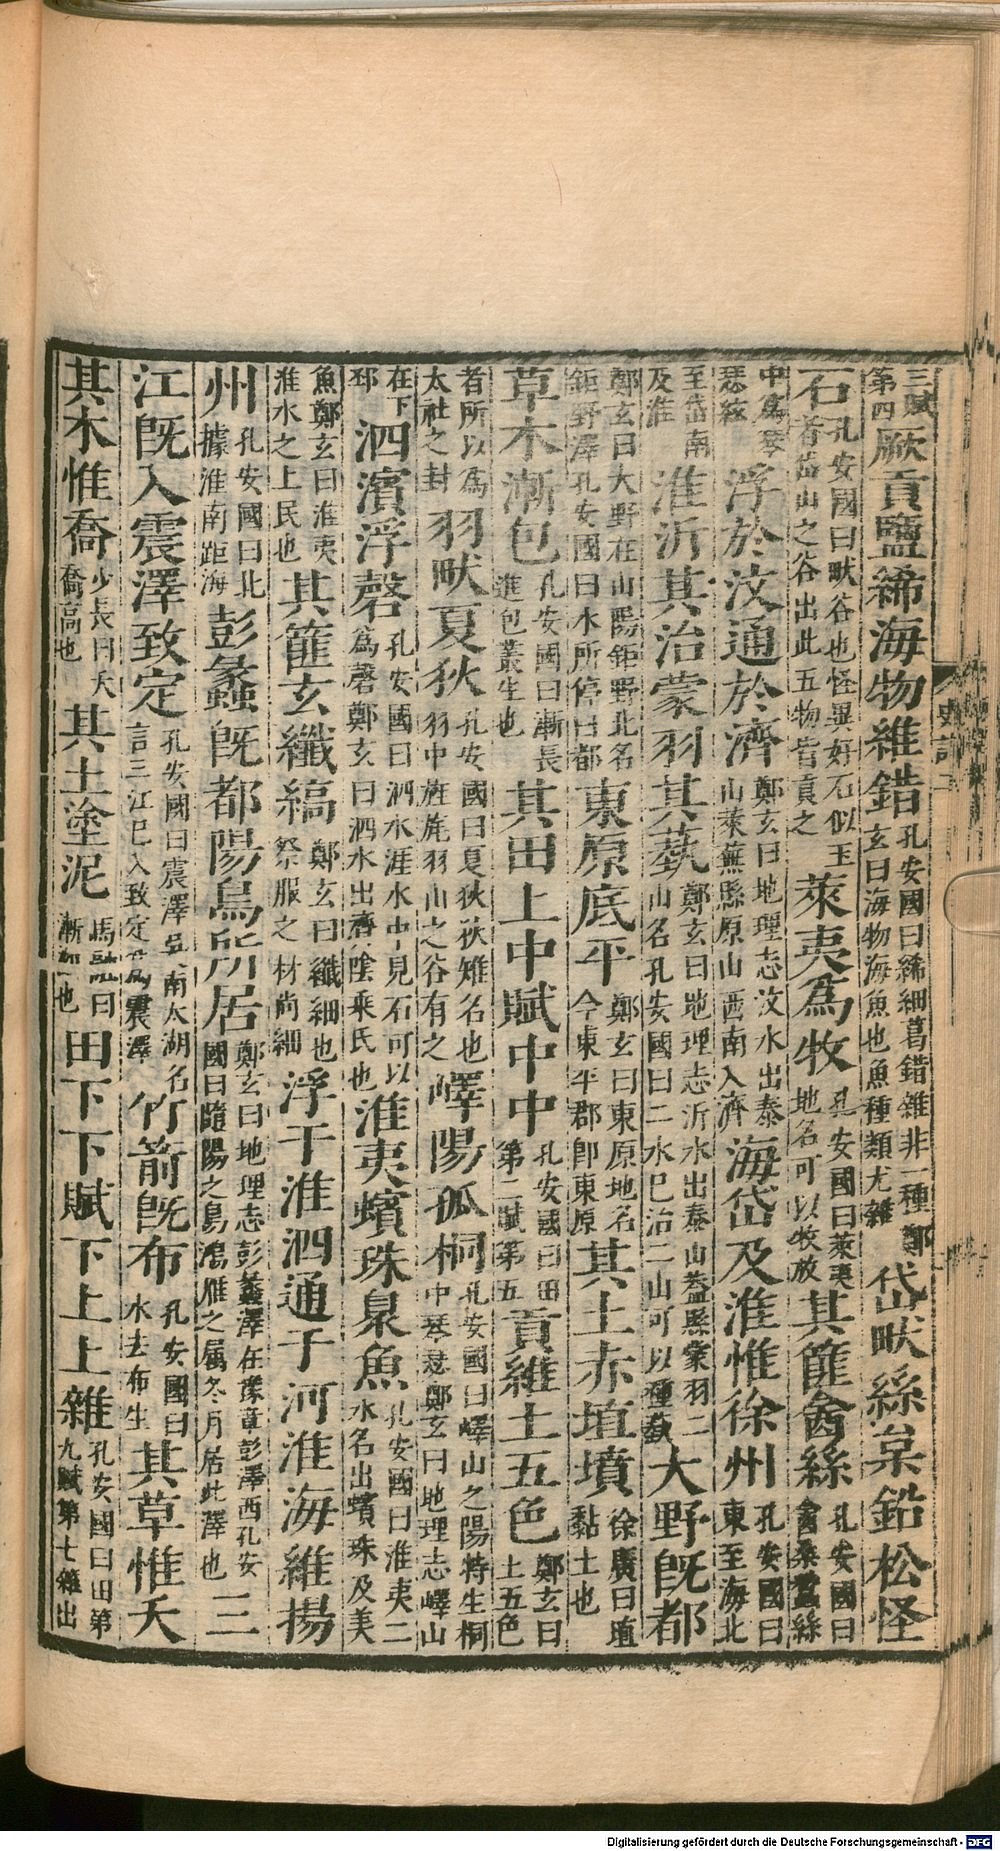 三賦第四厥貢鹽絺海物維錯孔安國曰絺細葛錯雜非一種鄭玄曰海物海魚也魚種類尤雜岱畎絲枲鉛松怪
石孔安國曰畎谷也怪異好石似玉者岱山之谷出此五物皆貢之萊夷爲牧孔安國曰萊夷地名可以牧放其篚酓絲孔安國曰酓桑蠶絲
中爲琴瑟絃浮於汶通於濟鄭玄曰地理志汶水出泰山萊蕪縣原山西南入濟海岱及淮惟徐州孔安國曰東至海北
至岱南及淮淮沂其治蒙羽其蓺鄭玄曰地理志沂水出泰山蓋縣蒙羽二山名孔安國曰二水已治二山可以種蓺大野既都
鄭玄曰大野在山陽鉅野北名鉅野澤孔安國曰水所停曰都東原底平鄭玄曰東原地名今東平郡即東原其土赤埴墳徐廣曰埴黏土也
草木漸包孔安國曰漸長進包叢生也其田上中賦中中孔安國曰田第二賦第五貢維土五色鄭玄曰土五色
者所以爲太社之封羽畎夏狄孔安國曰夏狄狄雉名也羽中旌旄羽山之谷有之嶧陽孤桐孔安國曰嶧山之陽特生桐中琴瑟鄭玄曰地理志嶧山
在下邳泗濱浮磬孔安國曰泗水涯水中見石可以爲磬鄭玄曰泗水出濟陰乘氏也淮夷蠙珠臮魚孔安國曰淮夷二水名出蠙珠及美
魚鄭玄曰淮夷淮水之上民也其篚玄纖縞鄭玄曰纖細也祭服之材尚細浮于淮泗通于河淮海維揚
州孔安國曰北據淮南距海彭蠡既都陽鳥所居鄭玄曰地理志彭蠡澤在豫章彭澤西孔安國曰隨陽之鳥鴻雁之屬冬月居此澤也三
江既入震澤致定孔安國曰震澤吳南太湖名言三江已入致定爲震澤竹箭既布孔安國曰水去布生其草惟夭
其木惟喬少長曰夭喬高也其土塗泥馬融曰漸洳也田下下賦下上上雜孔安國曰田第九賦第七雜出
史記二
Digitalisierung gefördert durch die Deutsche Forschungsgemeinschaft - DFG